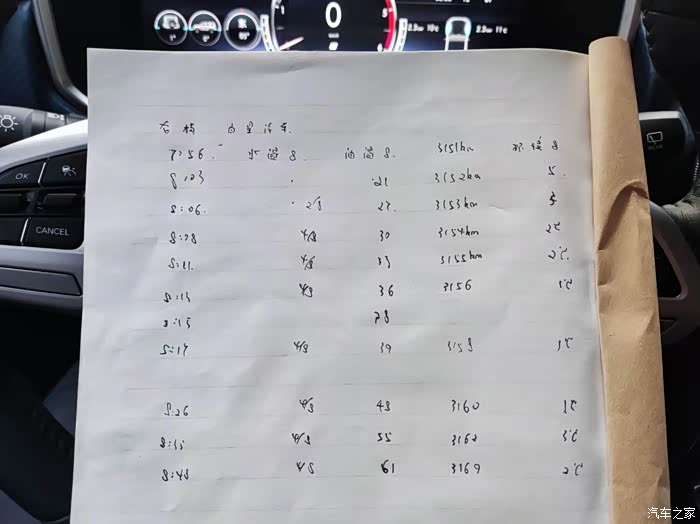 0
8
1°
0°
80°
2.3bar 10℃
2.3bar 11℃
OK
CANCEL
REAR
7:56. 水温8 油温8. 3151km 环境8
8:03 21 3152km 5.
8:06. 2/8 27. 3153km 5
8:08 4/8 30 3154km 2℃
8:11. 4/8 33 3155km 2℃.
8:13 4/8 36 3156 1℃
8:15 38
8:17 4/8 39 3158 1℃
8:26 4/8 48 3160 1℃
8:35 4/8 55 3162 3℃
8:48 4/8 61 3169 2℃
汽车之家